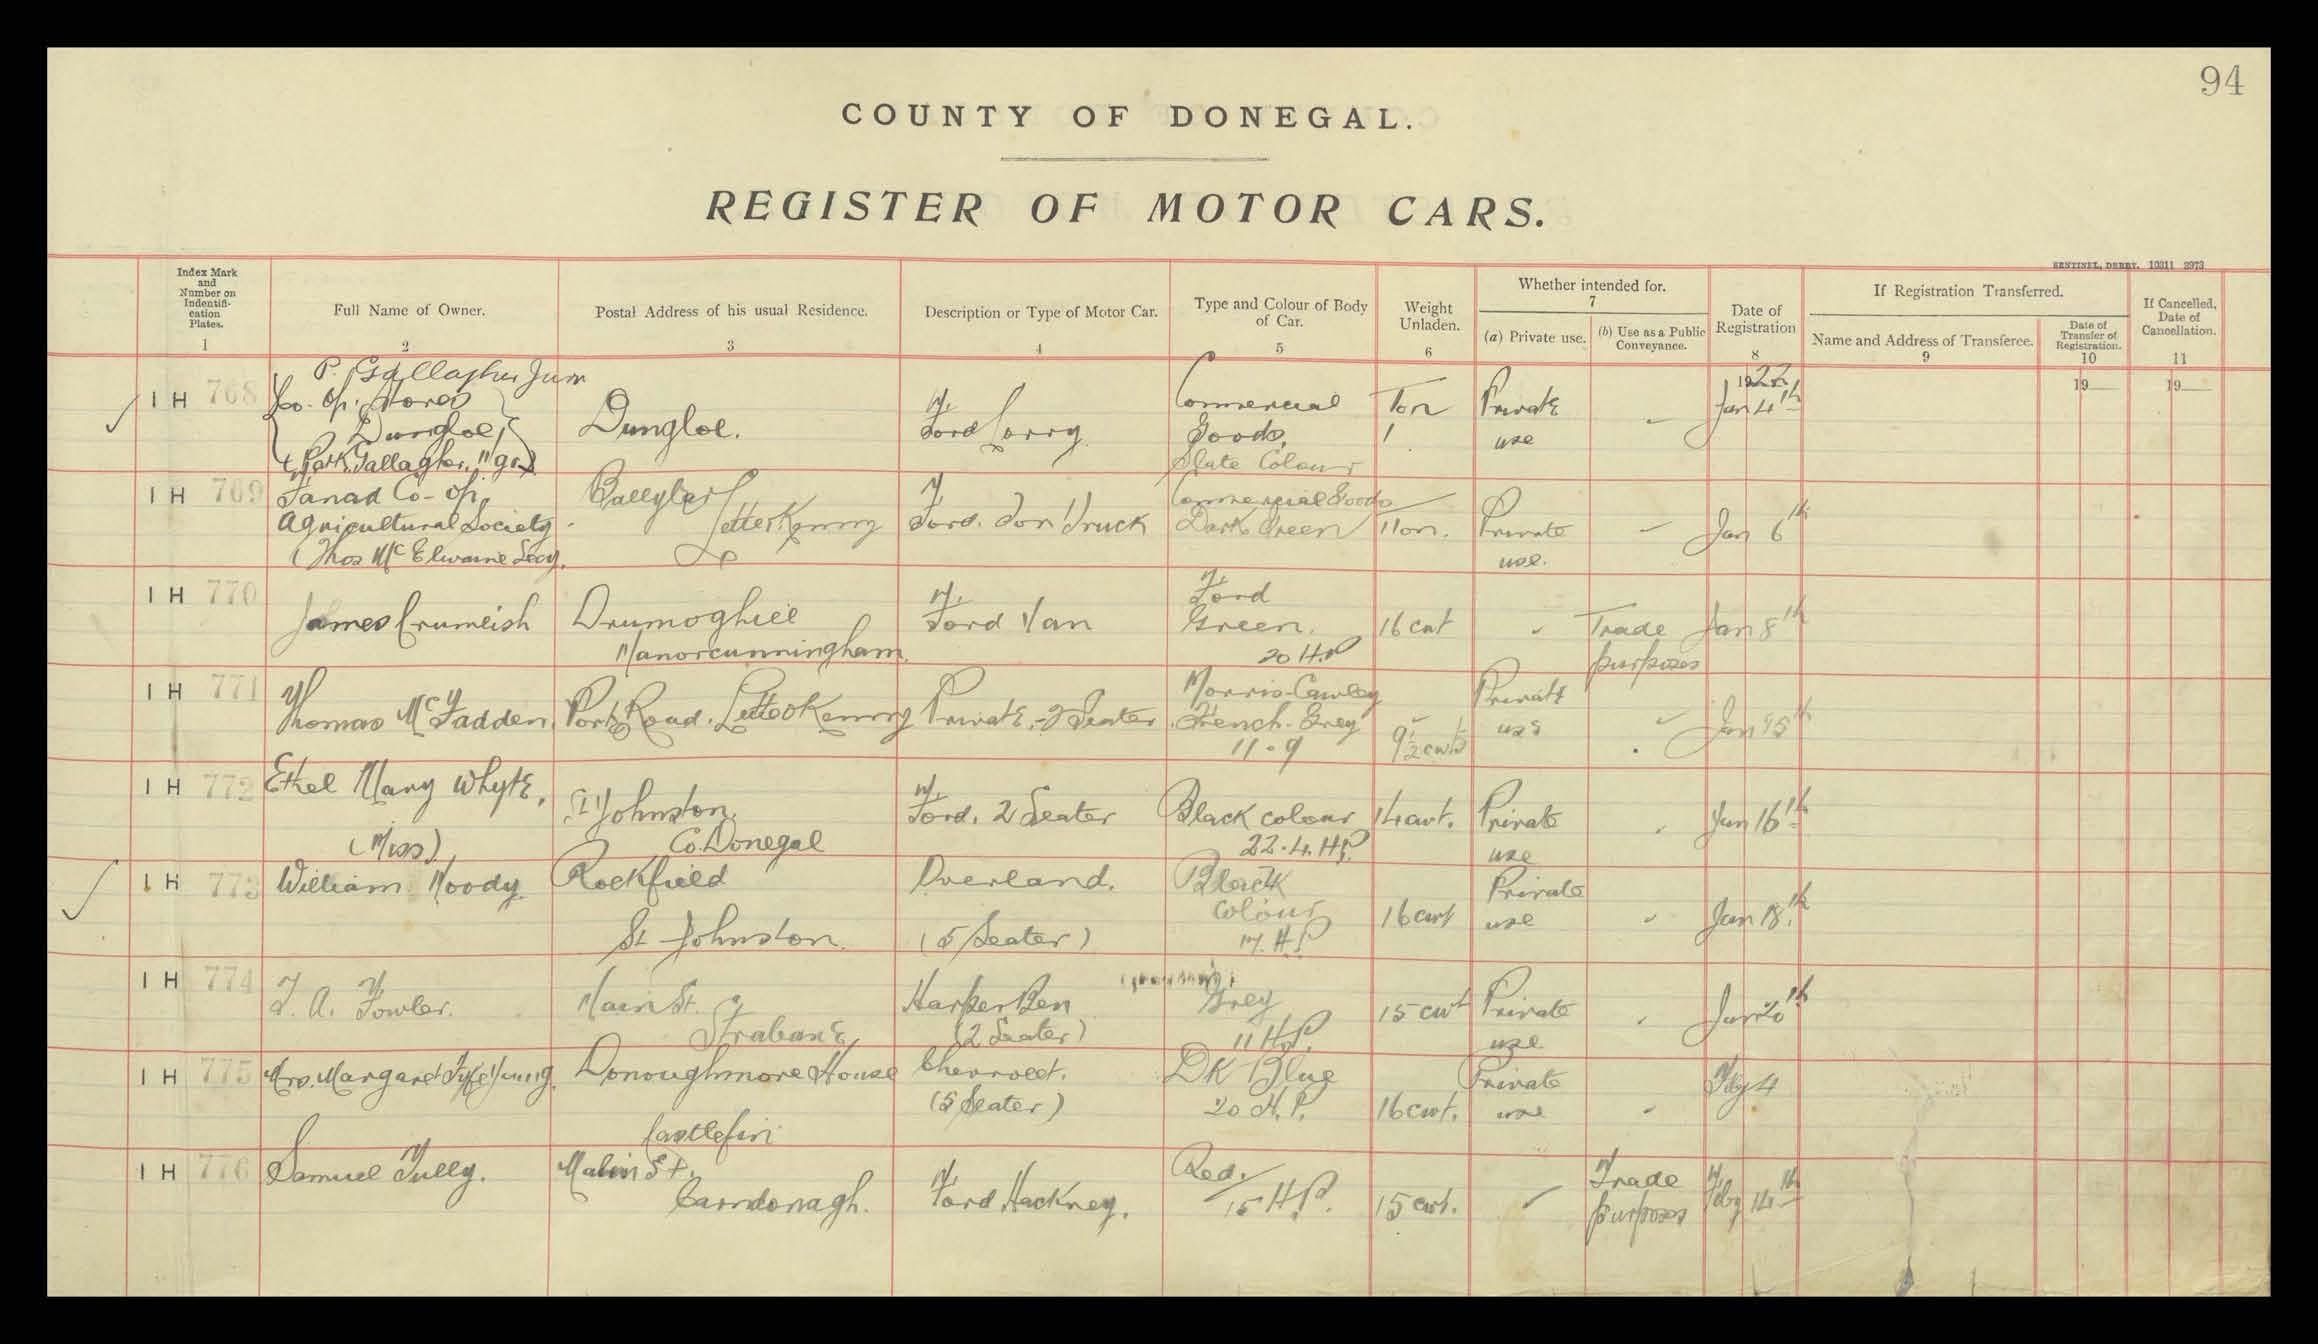 94
COUNTY OF DONEGAL.
REGISTER OF MOTOR CARS.
SENTINEL, DERRY. 10311 2973
Index Mark and Number on Indentifi-cation Plates. 1
Full Name of Owner. 2
Postal Address of his usual Residence. 3
Description or Type of Motor Car. 4
Type and Colour of Body of Car. 5
Weight Unladen. 6
Whether intended for. 7
(a) Private use.
(b) Use as a Public Conveyance.
Date of Registration 8
If Registration Transferred.
Name and Address of Transferee. 9
Date of Transfer of Registration. 10
If Cancelled, Date of Cancellation. 11
1922
19
19
P. Gallagher Junr
I H 768 Co. Op. Stores Dungloe, Dungloe. Ford Lorry Commercial Goods, Slate Colour Ton 1 Private use Jan 4th
Patk. Gallagher
I H 769 Fanad Co-Op. Agricultural Society (Thos McElwaine Secy. Letterkenny Ford. Ton Truck Commercial Goods Dark Green 1 Ton. Private use. Jan 6th
I H 770 James Crumlish Drumoghill Manorcunningham. Ford Van Ford Green. 20 H.P 16 cwt Trade purposes Jan 8th
I H 771 Thomas McFadden, Port Road. Letterkenny Private, -2 Seater Morris-Cowley French-Grey 11-9 9½ cwts Private use Jan 15th
I H 772 Ethel Mary Whyte, (Miss) St Johnston. Co. Donegal Ford. 2 Seater Black colour 22.4. H.P. 14 cwt. Private use Jan 16th
I H 773 William Moody. Rockfield St Johnston. Overland. (5 Seater) Black Colour H.P. 16 cwt Private use Jan 18.th
I H 774 T. A. Fowler. Main St. Strabane Harper Ben (2 Seater) Grey 11 H.P. 15 cwt Private use Jan 20th
I H 775 Mrs. Margaret Fyfe Young. Donoughmore House Castlefin Chevrolet. (5 Seater) DK Blue 20 H.P. 16 cwt. Private use Feby 4
I H 776 Samuel Tully. Malin St. Carndonagh. Ford Hackney. Red. 15 H.P. 15 cwt. Trade purposes Feby 14th